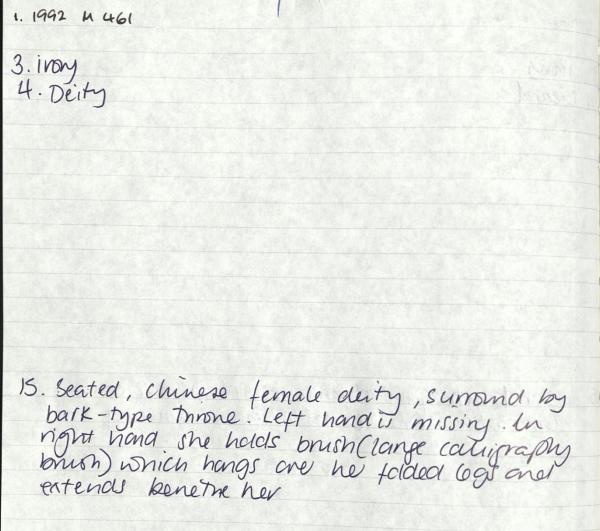 1. 1992 M 461
3. ivory
4. Deity
15. Seated, chinese female deity, surround by
bark-type throne. Left hand is missing. In
right hand she holds brush (large caligraphy
brush) which hangs are he folded legs and
extends benethe her